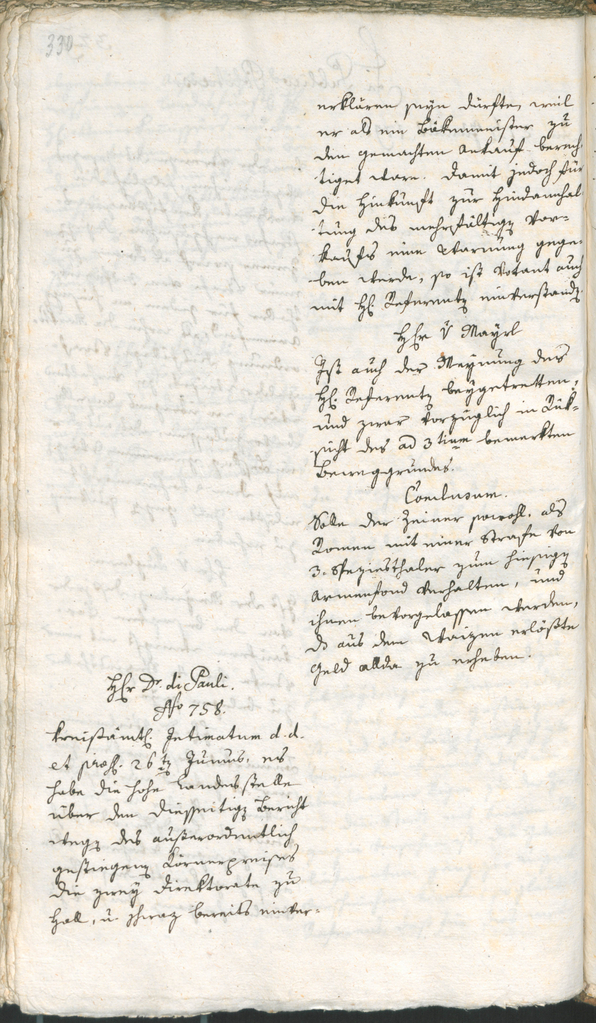 330
erklären seyn dürften, weil
er als ein Bökenmeister zu
den gemachten Ankauf berech
tiget ware. Damit jedoch für
die Hinkunft zur Hindanhal
tung des mehrfältigen Vor-
kaufs eine Warnung gege-
ben werde, so ist Votant auch
mit H: Referenten einverstanden.
Hhr v Mayrl
Ist auch der Meynung des
H: Referenten beygetretten,
und zwar vorzüglich in Rük-
sicht des ad 3tium bemerkten
Beweggrundes.
Conclusum.
Solle der Zeiner sowohl, als
Romen mit einer Strafe von
3. Speziesthaler zum hiesigen
Armenfond verhalten, und
ihnen bevorgelassen werden,
das aus dem Waizen erlößte
Geld allda zu erheben.
Hhr Dr di Pauli.
No 758.
Kreisämtl: Intimatum d. d.
et præs: 26ten Junius, es
habe die hohe Landesstelle
über den diesseitigen Bericht
wegen des außerordentlich
gestiegenen Körnerpreises
die zwey Direktorate zu
Hall, u. Schwaz bereits einver-